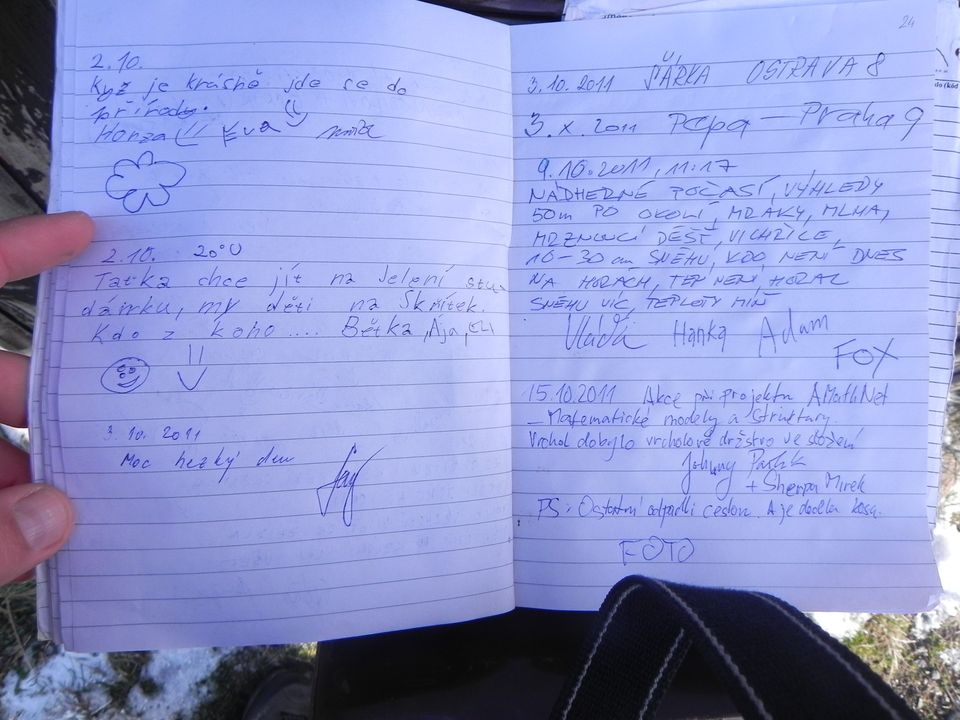 2.10.
Když je krásně jde se do
přírody.
Honza Eva
2.10. 20°C
Taťka chce jít na Jelení stu-
dánku, my děti na Skřítek.
Kdo z koho .... Bětka, Ája, Eli
3. 10. 2011
Moc hezký den
24
3.10.2011 ŠÁRKA OSTRAVA 8
3.X.2011 Pepa - Praha 9
9.10.2011, 11:17
NÁDHERNÉ POČASÍ, VÝHLEDY
50m PO OKOLÍ, MRAKY, MLHA,
MRZNOUCÍ DÉŠŤ, VICHŘICE,
10-30 cm SNĚHU, KDO NENÍ DNES
NA HORÁCH, TEN NENÍ HORAL
SNĚHU VÍC, TEPLOTY MÍŇ
Vláďa Hanka Adam
FOX
15.10.2011 Akce při projektu AMathNet
- Matematické modely a struktury.
Vrchol dobylo vrcholové držstvo ve složení
Johnny
+ Sherpa Mirek
PS: Ostatní odpadli cestou. A je docela kosa.
FOTO